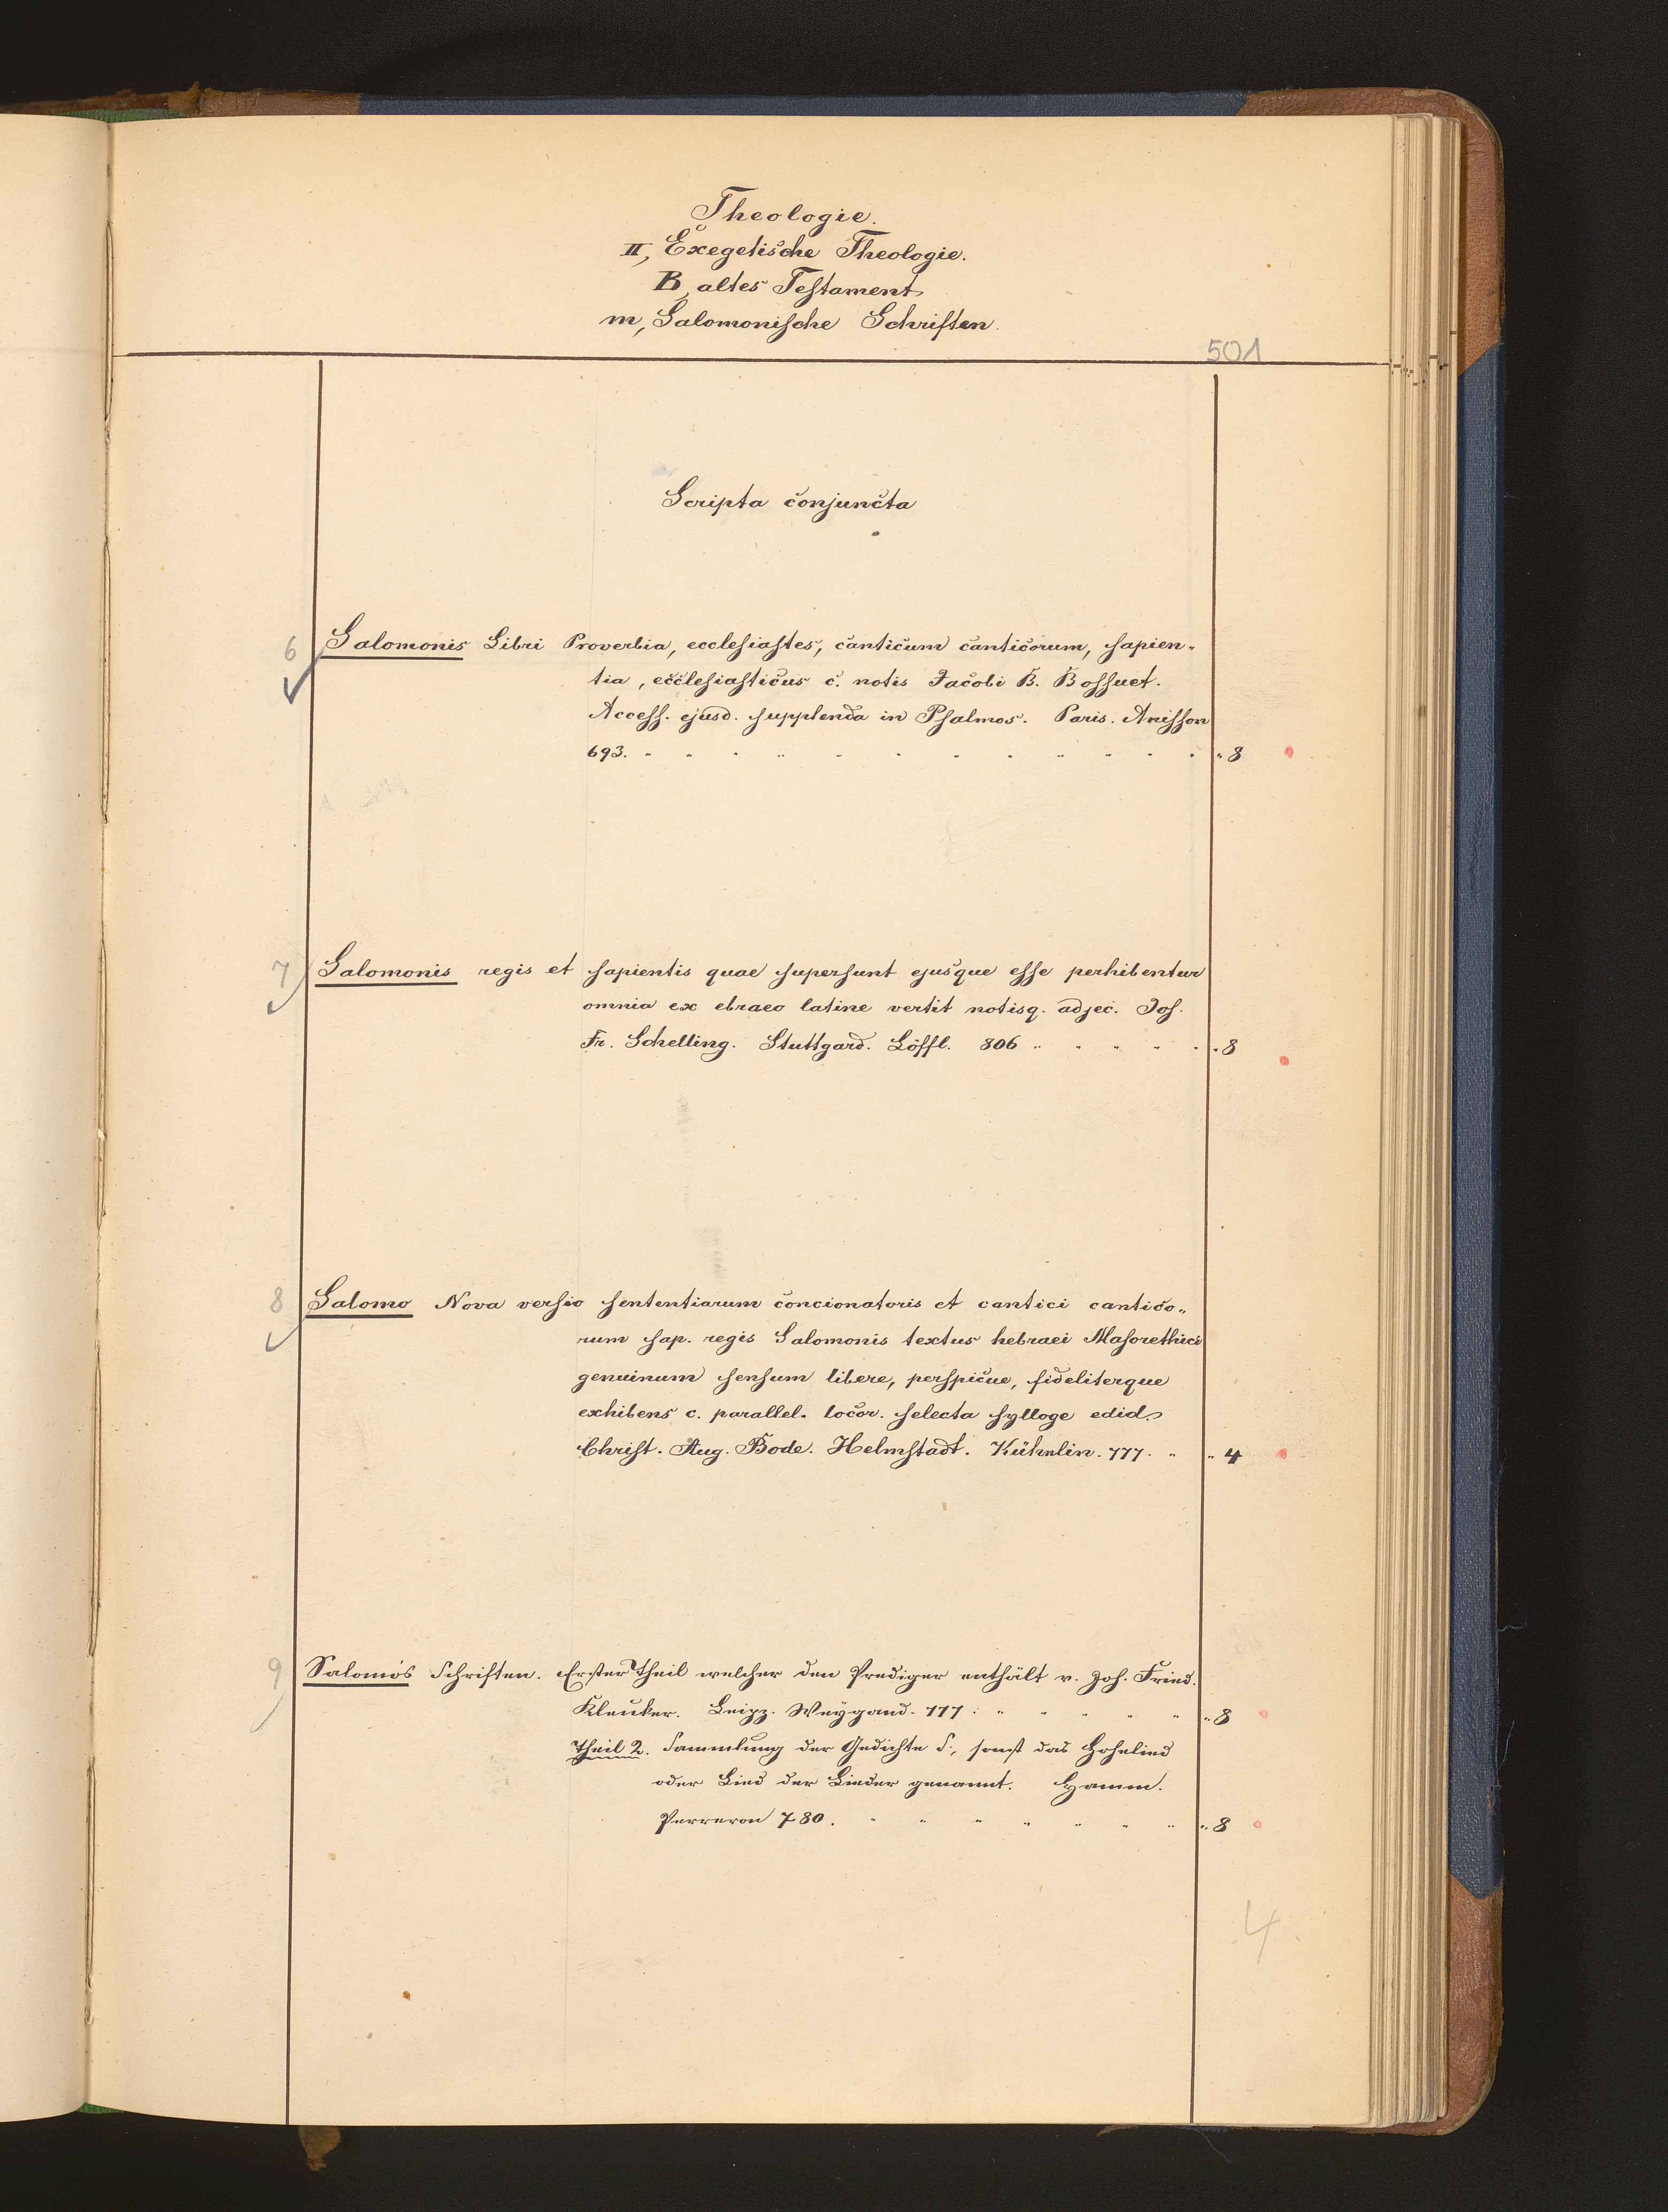 Theologie.
II, Exegetische Theologie.
B, altes Testament
m, Salomonische Schriften.
501
Scripta conjuncta
6 Salomonis Libri Proverbia, ecclesiastes, canticum canticorum, sapien-
tia, ecclesiasticus c. notis Jacobi B. Bossuet.
Access. ejusd. supplenda in Psalmos. Paris. Anisson
693. " 8
7 Salomonis regis et sapientis quae supersunt ejusque esse perhibentur
omnia ex ebraeo latine vertit notisq. adjec. Jos.
Fr. Schelling. Stuttgard. Löffl. 806 " 8
8 Salomo Nova versio sententiarum concionatoris et cantici cantico-
rum sap. regis Salomonis textus hebraei Masorethici
genuinum sensum libere, perspicue, fideliterque
exhibens c. parallel. locor. selecta sylloge edid.
Christ. Aug. Bode. Helmstadt. Kühnlin. 777. " 4
9 Salomo's Schriften. Erster Theil welcher den Prediger enthält v. Joh. Fried.
Kleuker. Leipz. Weygand. 777: " 8
Theil 2. Sammlung der Gedichte S:, sonst das Hohelied
oder Lied der Lieder genannt. Hamm.
Perreron 780. " 8
4